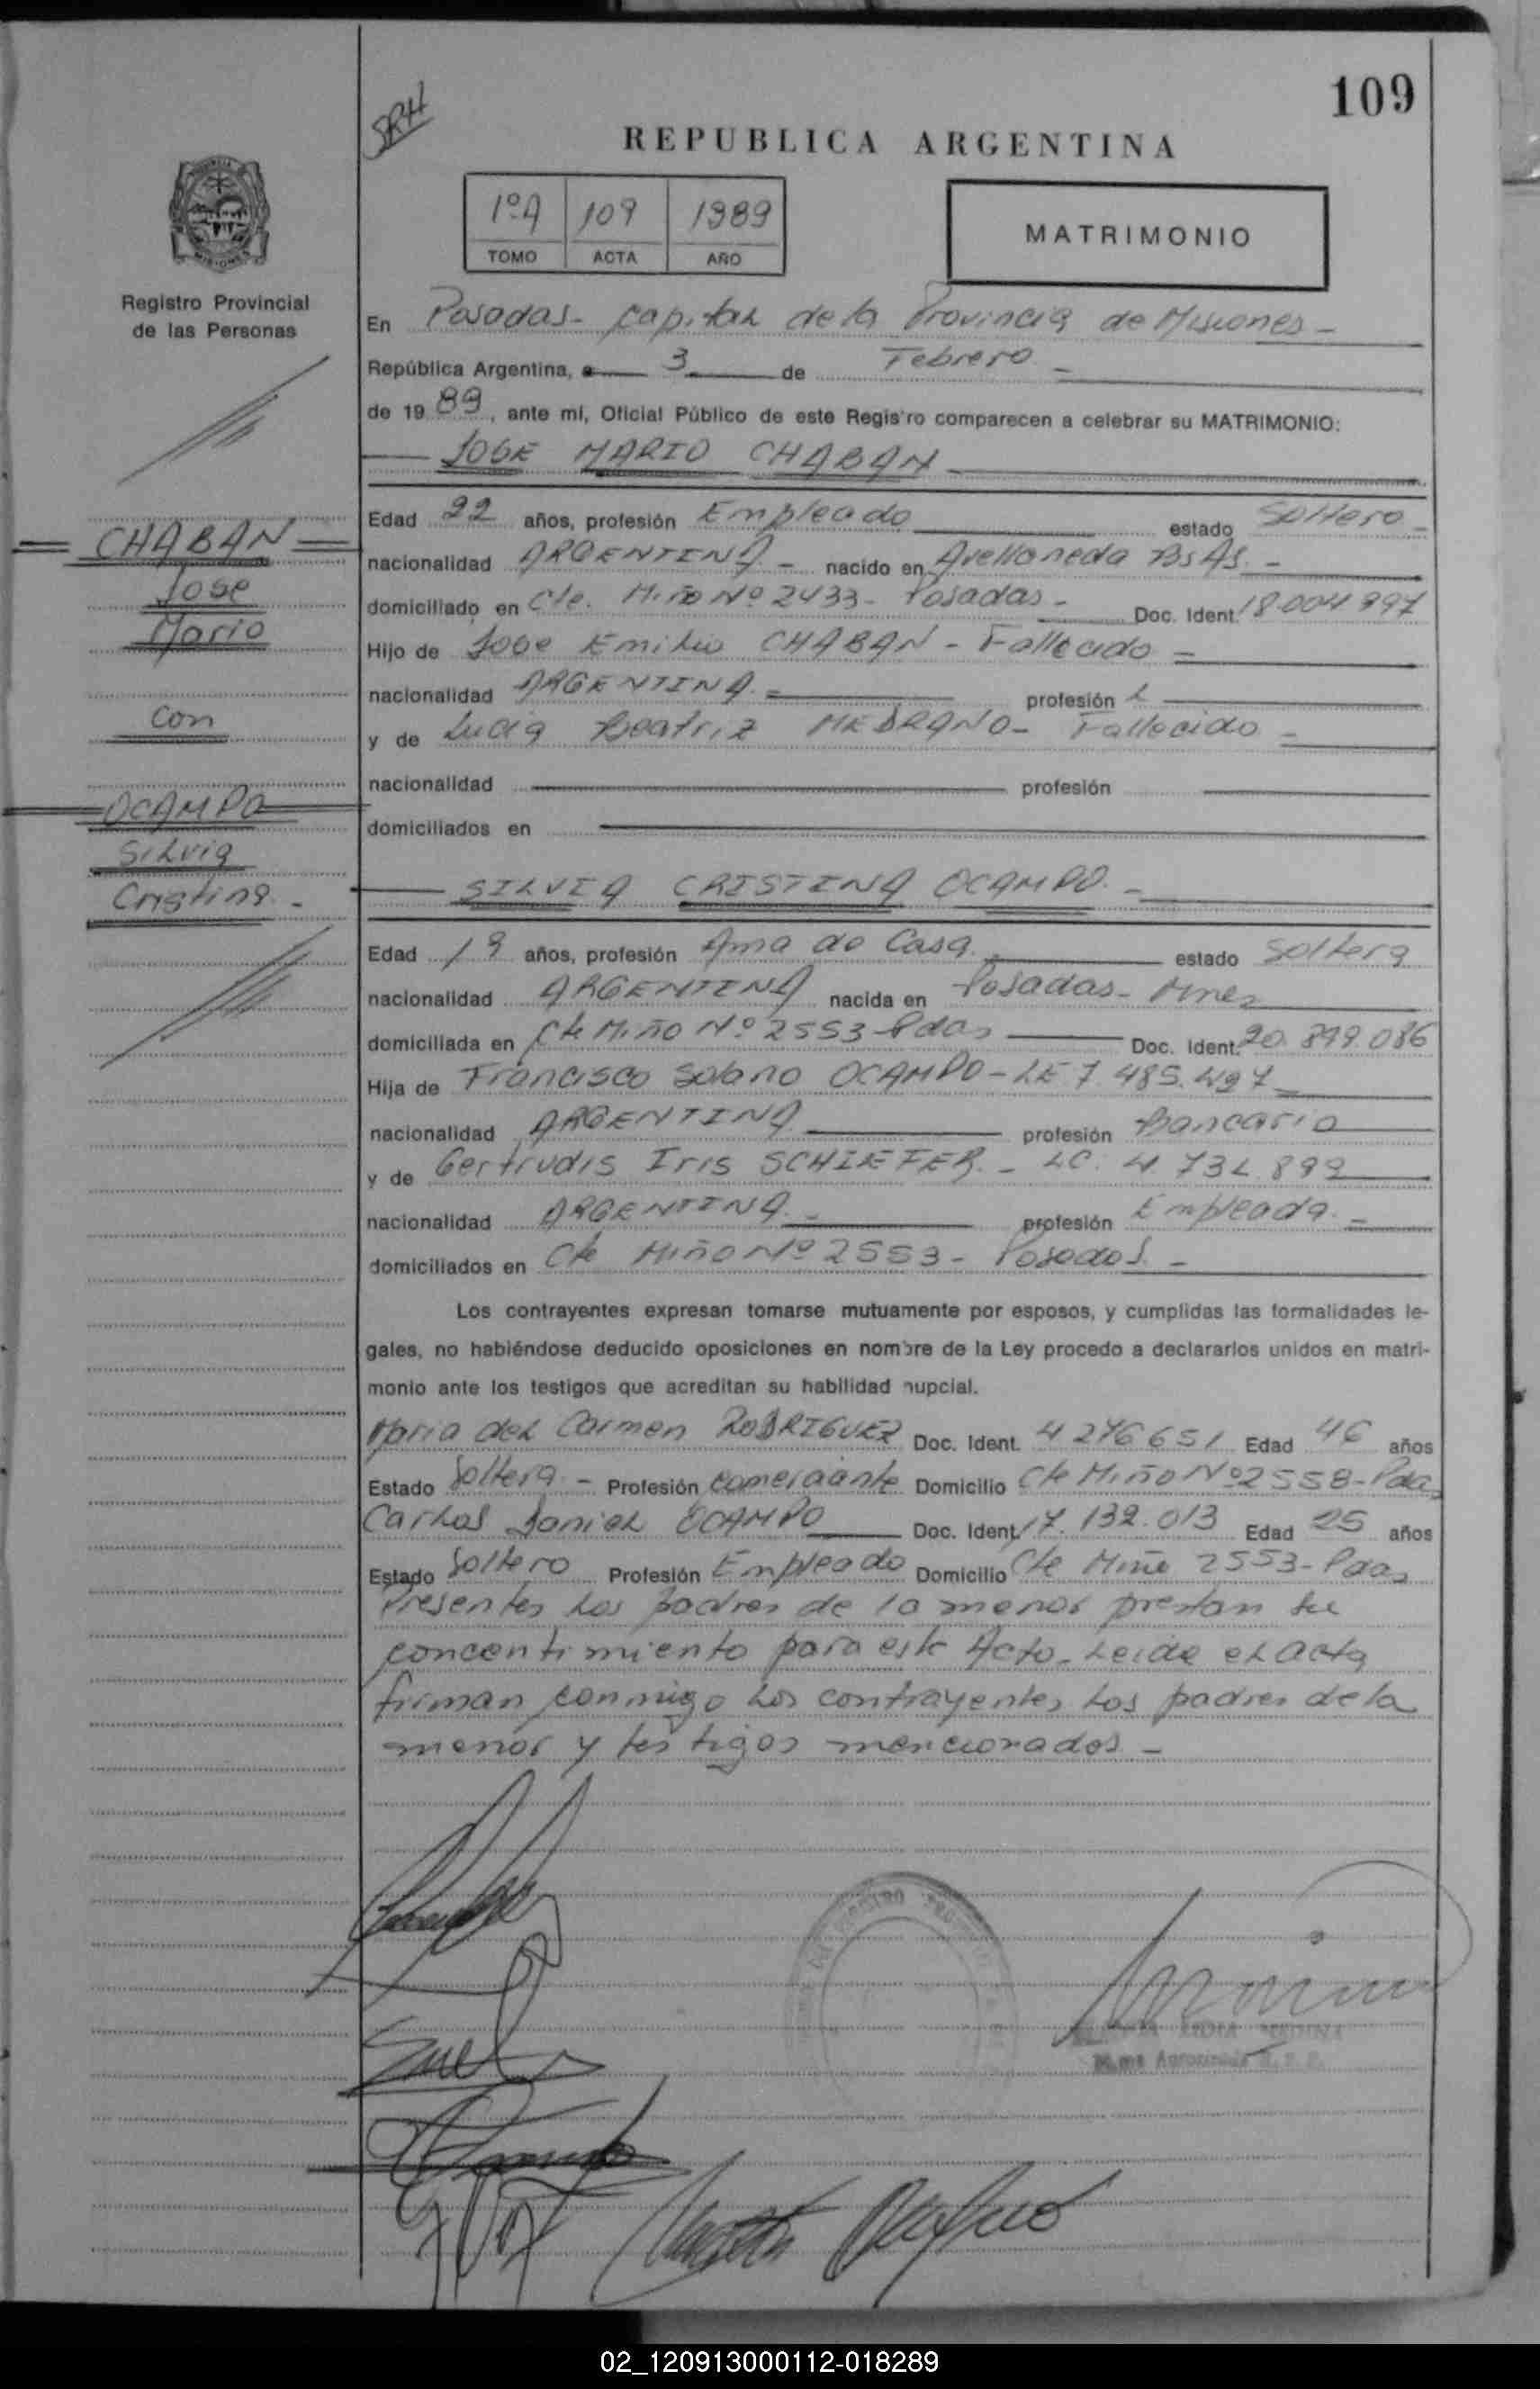 109
SRH
REPUBLICA ARGENTINA
1ºA 109 1989
TOMO ACTA AÑO
MATRIMONIO
MISIONES
Registro Provincial
de las Personas
En Posadas - capital de la Provincia de Misiones -
República Argentina, a 3 de Febrero -
de 19 89, ante mí, Oficial Público de este Registro comparecen a celebrar su MATRIMONIO:
JOSE MARIO CHABAN
CHABAN
Jose
Mario
con
OCAMPO
Silvia
Cristina -
Edad 22 años, profesión Empleado estado Soltero -
nacionalidad ARGENTINA - nacido en Avellaneda Bs As. -
domiciliado en Cte. Miño Nº 2433 - Posadas - Doc. Ident. 18.004.997
Hijo de Jose Emilio CHABAN - Fallecido -
nacionalidad ARGENTINA - profesión
y de Lucia Beatriz MEDRANO - Fallecido -
nacionalidad profesión
domiciliados en
SILVIA CRISTINA OCAMPO. -
Edad 19 años, profesión Ama de Casa estado Soltera
nacionalidad ARGENTINA nacida en Posadas - Mnes
domiciliada en Cte Miño Nº 2553 - Pdas Doc. Ident. 20.899.086
Hija de Francisco Solano OCAMPO - LE 7.485.497
nacionalidad ARGENTINA profesión Bancario
y de Gertrudis Iris SCHIEFER. - LC. 4.731.899
nacionalidad ARGENTINA - profesión Empleada. -
domiciliados en Cte Miño Nº 2553 - Posadas. -
Los contrayentes expresan tomarse mutuamente por esposos, y cumplidas las formalidades le-
gales, no habiéndose deducido oposiciones en nombre de la Ley procedo a declararlos unidos en matri-
monio ante los testigos que acreditan su habilidad nupcial.
Maria del Carmen RODRIGUEZ Doc. Ident. 4276651 Edad 46 años
Estado Soltera - Profesión comerciante Domicilio Cte Miño Nº 2558 - Pdas
Carlos Daniel OCAMPO Doc. Ident. 17.132.013 Edad 25 años
Estado Soltero Profesión Empleado Domicilio Cte Miño 2553 - Pdas
Presentes los padres de la menor prestan su
concentimiento para este Acto - Leida el acta
firman conmigo los contrayentes los padres de la
menor y testigos mencionados -
LIDIA MEDINA
02_120913000112-018289